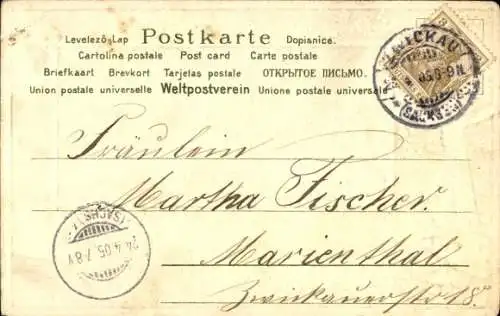 Levelező-Lap Postkarte Dopisnice.
Cartolina postale Post card Carte postale
Briefkaart Brevkort Tarjetas postale ОТКРЫТОЕ ПИСЬМО.
Union postale universelle Weltpostverein Unione postale universale
ZWICKAU
05.8-9N
(SACHSEN)
Fräulein
Martha Fischer.
Marienthal
Zwickauerstr 18.
(SACHSEN)
24.4.05.7-8V